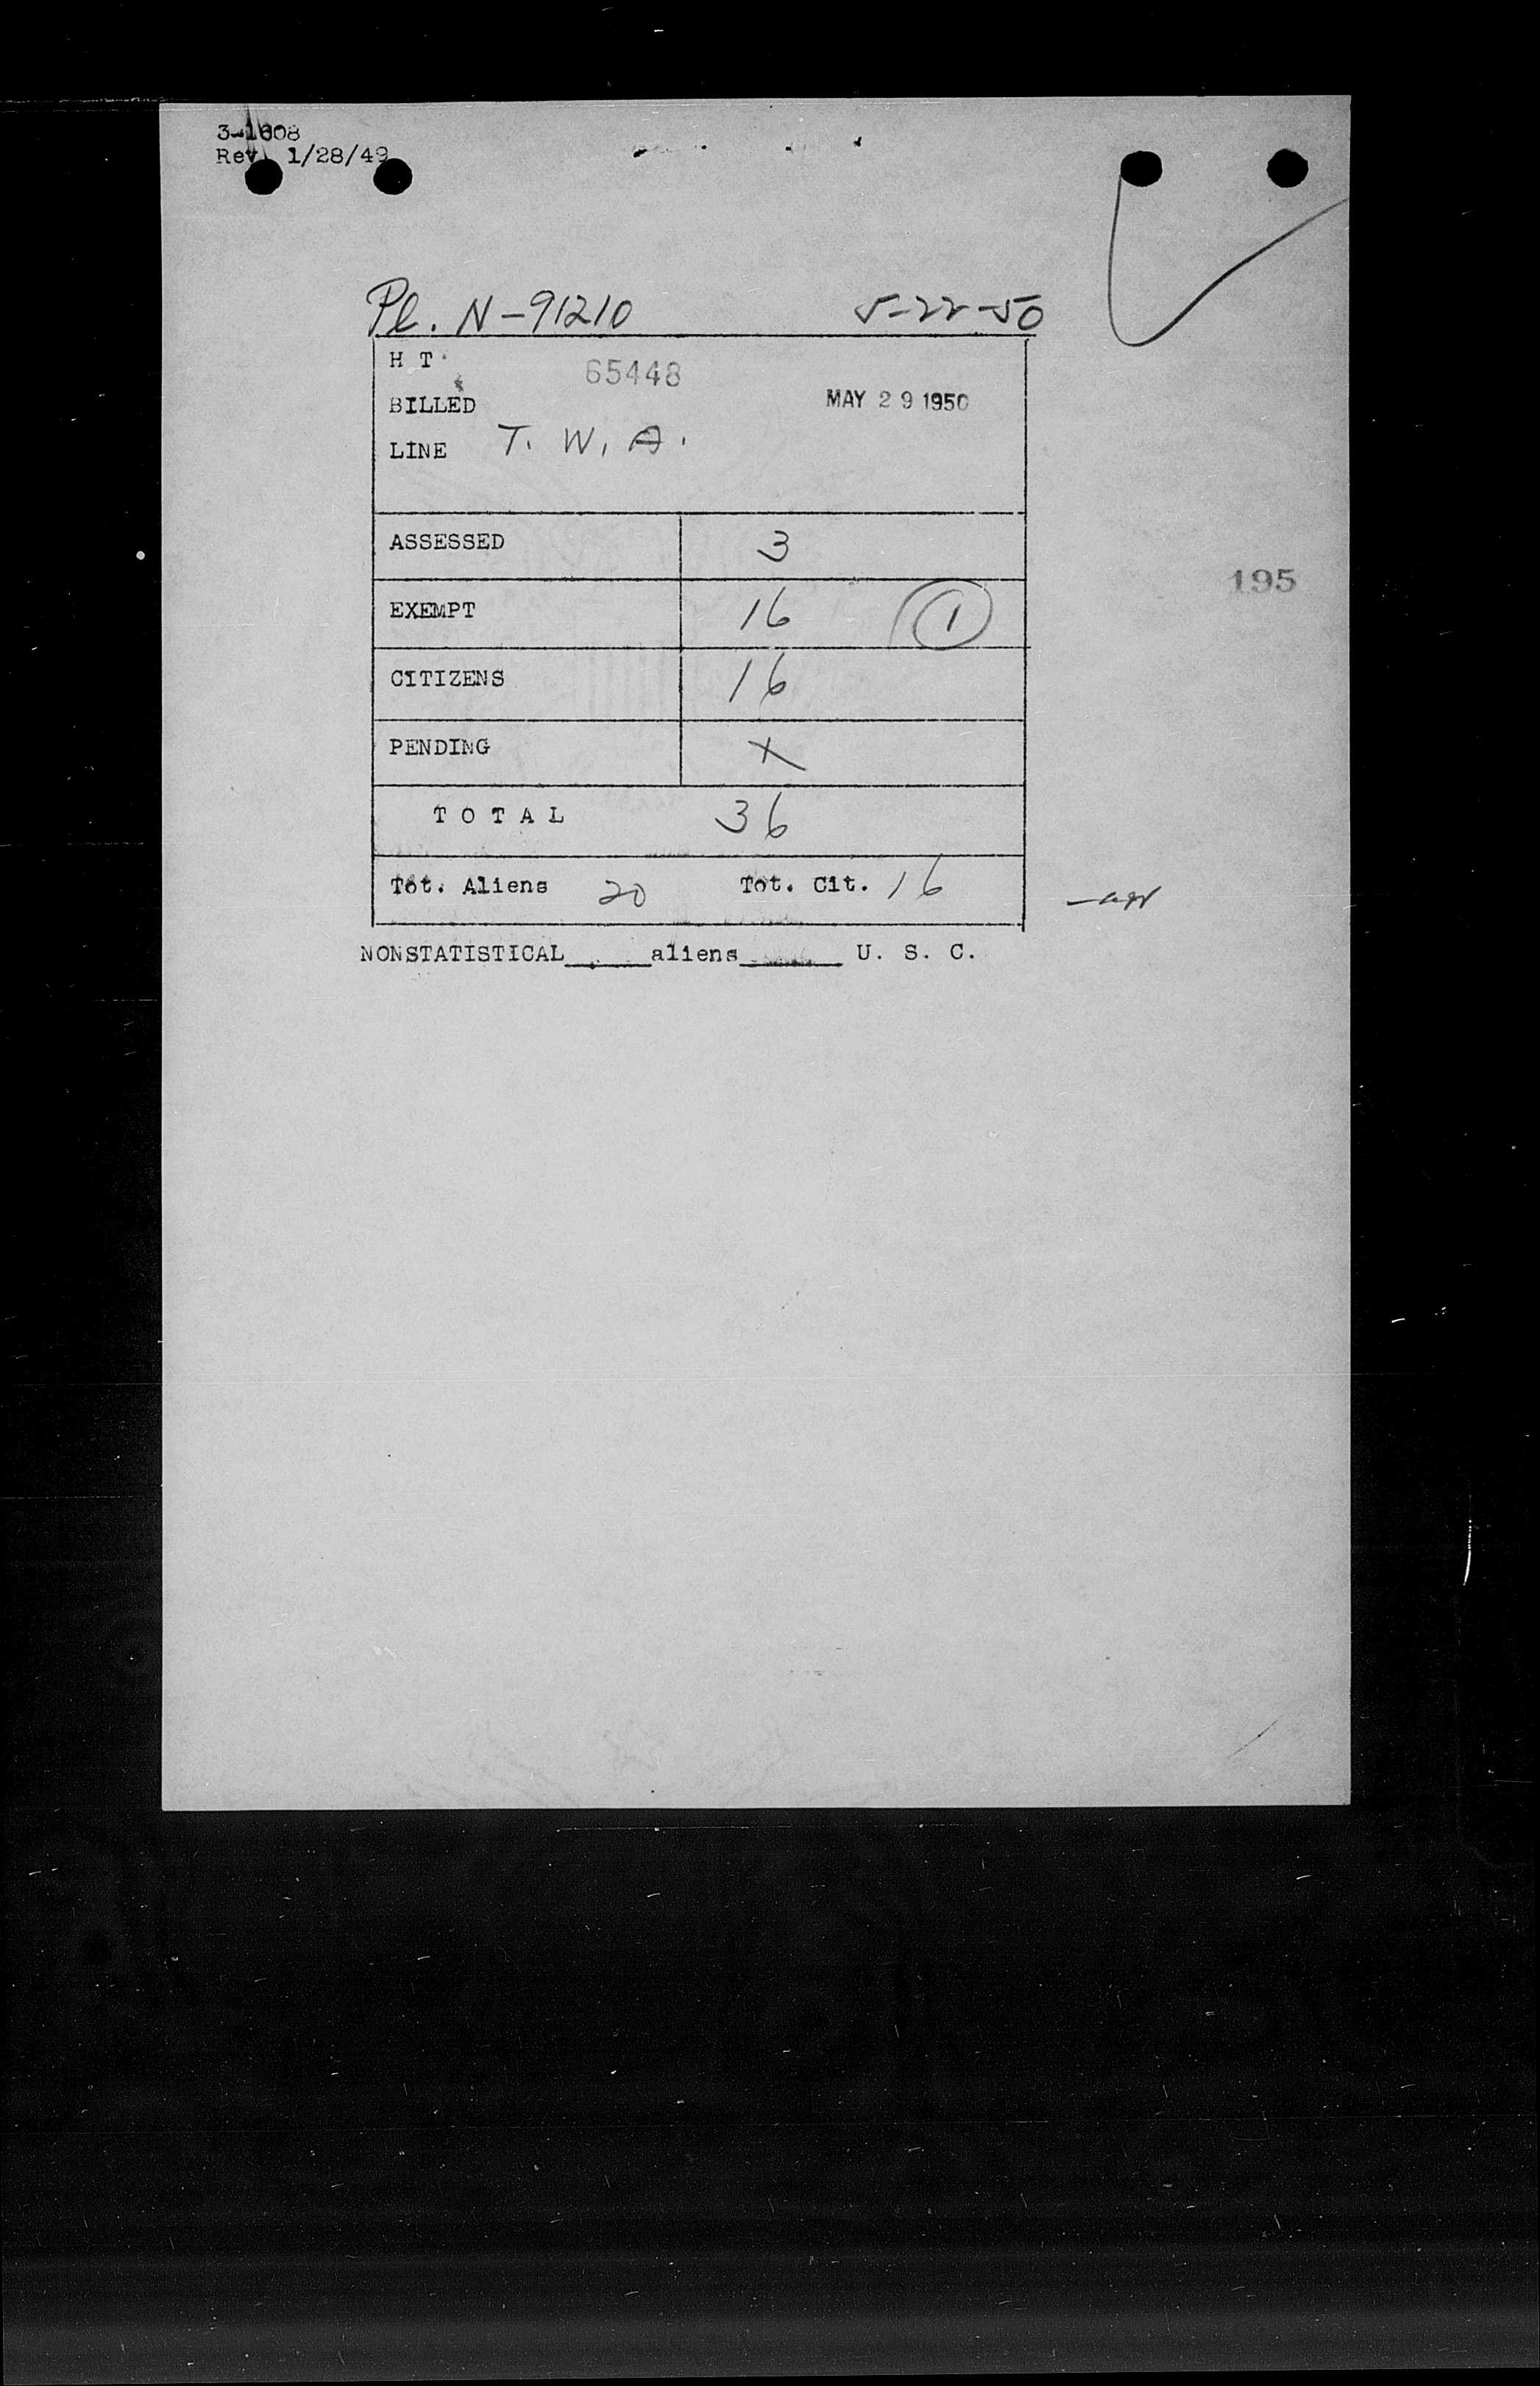 3-1608
Rev 1/28/49
Pl. N-91210 5-22-50
H T 65448
BILLED MAY 29 1950
LINE T. W. A.
ASSESSED 3
195
EXEMPT 16 1
CITIZENS 16
PENDING X
TOTAL 36
Tot. Aliens 20 Tot. Cit. 16
NONSTATISTICAL____aliens____ U. S. C.